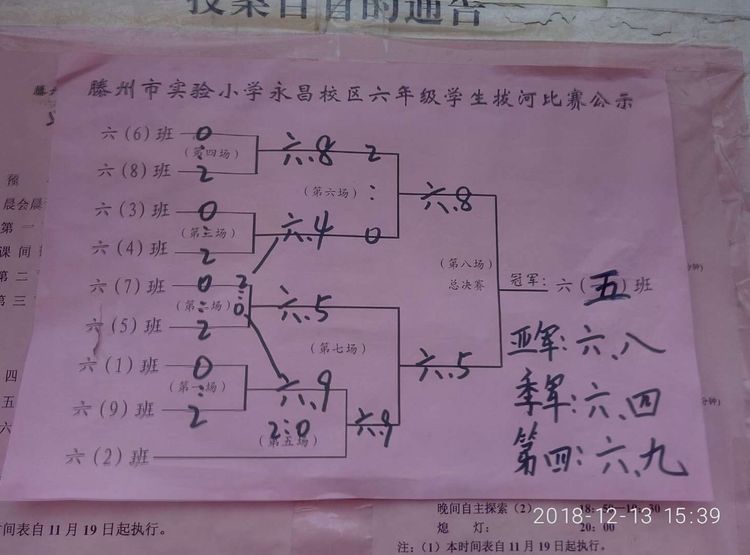 投案自首的通告
滕州市实验小学永昌校区六年级学生拔河比赛公示
六(6)班 0
(第四场) : 六、8 2
六(8)班 2
(第六场) : 六、8
六(3)班 0
(第三场) : 六、4 0
六(4)班 2
(第八场)
总决赛 冠军: 六(五)班
六(7)班 0 2:0
(第二场) : 六、5
六(5)班 2
亚军:六、八
(第七场) 六、5
六(1)班 0
(第一场) : 六、9
季军:六、四
六(9)班 2
2:0 六、9
(第五场)
第四:六、九
六(2)班
预
晨会晨
第一
课间
第二
第三
四
五
六
时间表自11月19日起执行。
晚间自主探索(2) 18:50-19:30
熄 灯: 20:00
注:(1)本时间表自11月19日起执行。
2018-12-13 15:39